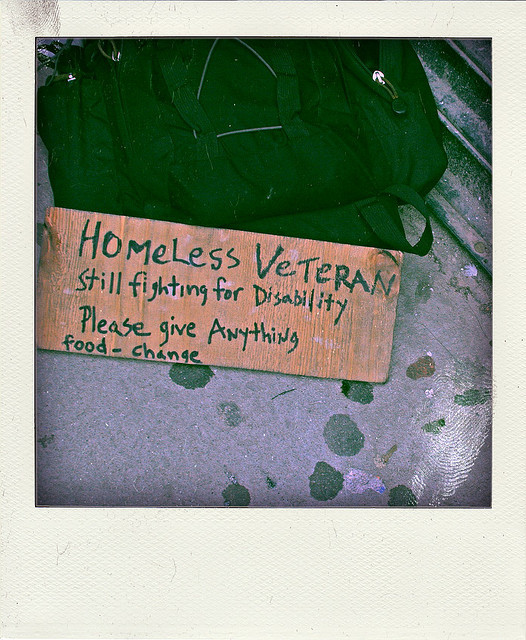 HOMeLess VeTeRAN
Still fighting for Disability
Please give Anything
food - change